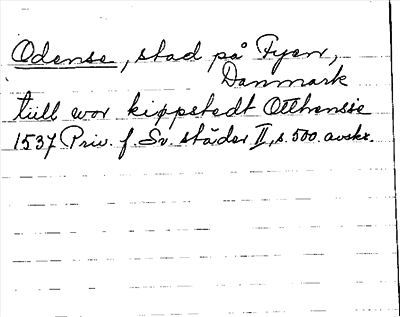 Odense, stad på Fyen,
Danmark
tiill wor kippstedt Otthensie
1537 Priv. f. Sv. städer II, s. 500. avskr.